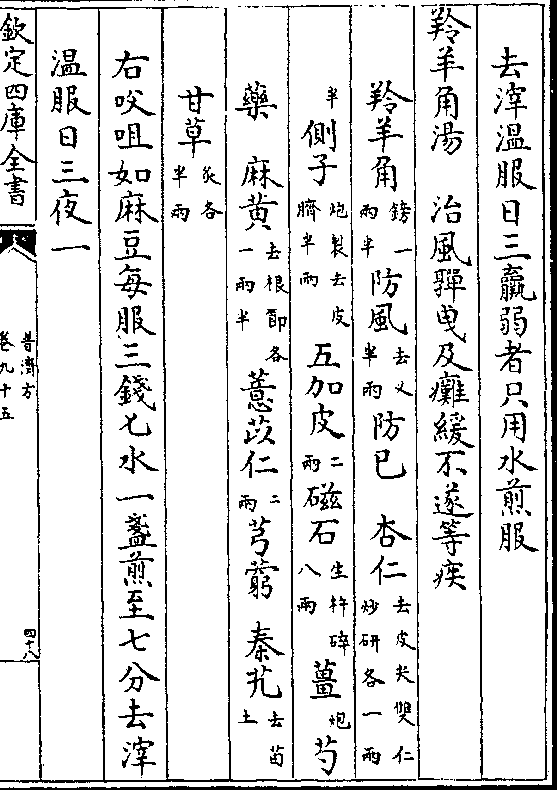 去滓温服日三羸弱者只用水煎服
羚羊角湯　治風驒曳及癱緩不遂等疾
羚羊角鎊一兩半防風去义半兩防巳　杏仁去皮尖雙仁炒研各一兩
半側子炮製去皮臍半兩五加皮二兩磁石生杵碎八兩薑炮芍
藥　麻黄去根節各一兩半薏苡仁二兩芎藭　秦艽去苗土
甘草炙各半兩
右㕮咀如麻豆每服三錢匕水一盞煎至七分去滓
温服日三夜一
欽定四庫全書
普濟方
卷九十五
四十八